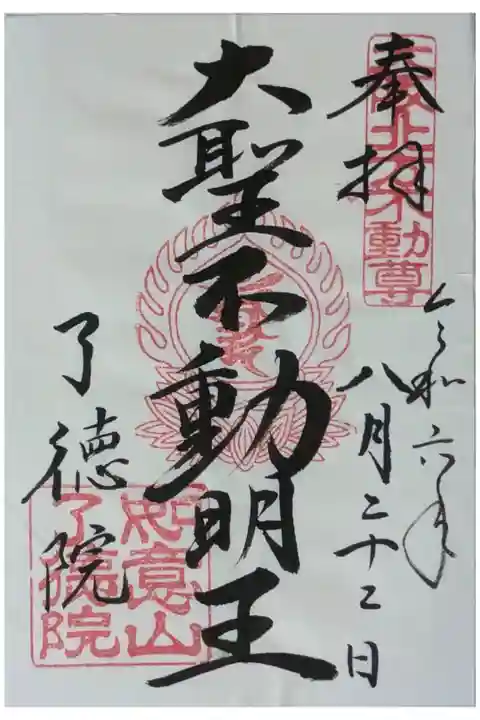 奉拝
大阪北不動尊
令和六年
八月二十二日
大聖不動明王
了徳院
如意山
了德院